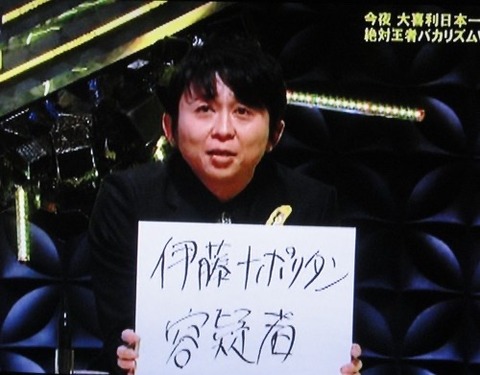 今夜 大喜利日本一
絶対王者バカリズムV
伊藤ナポリタン
容疑者